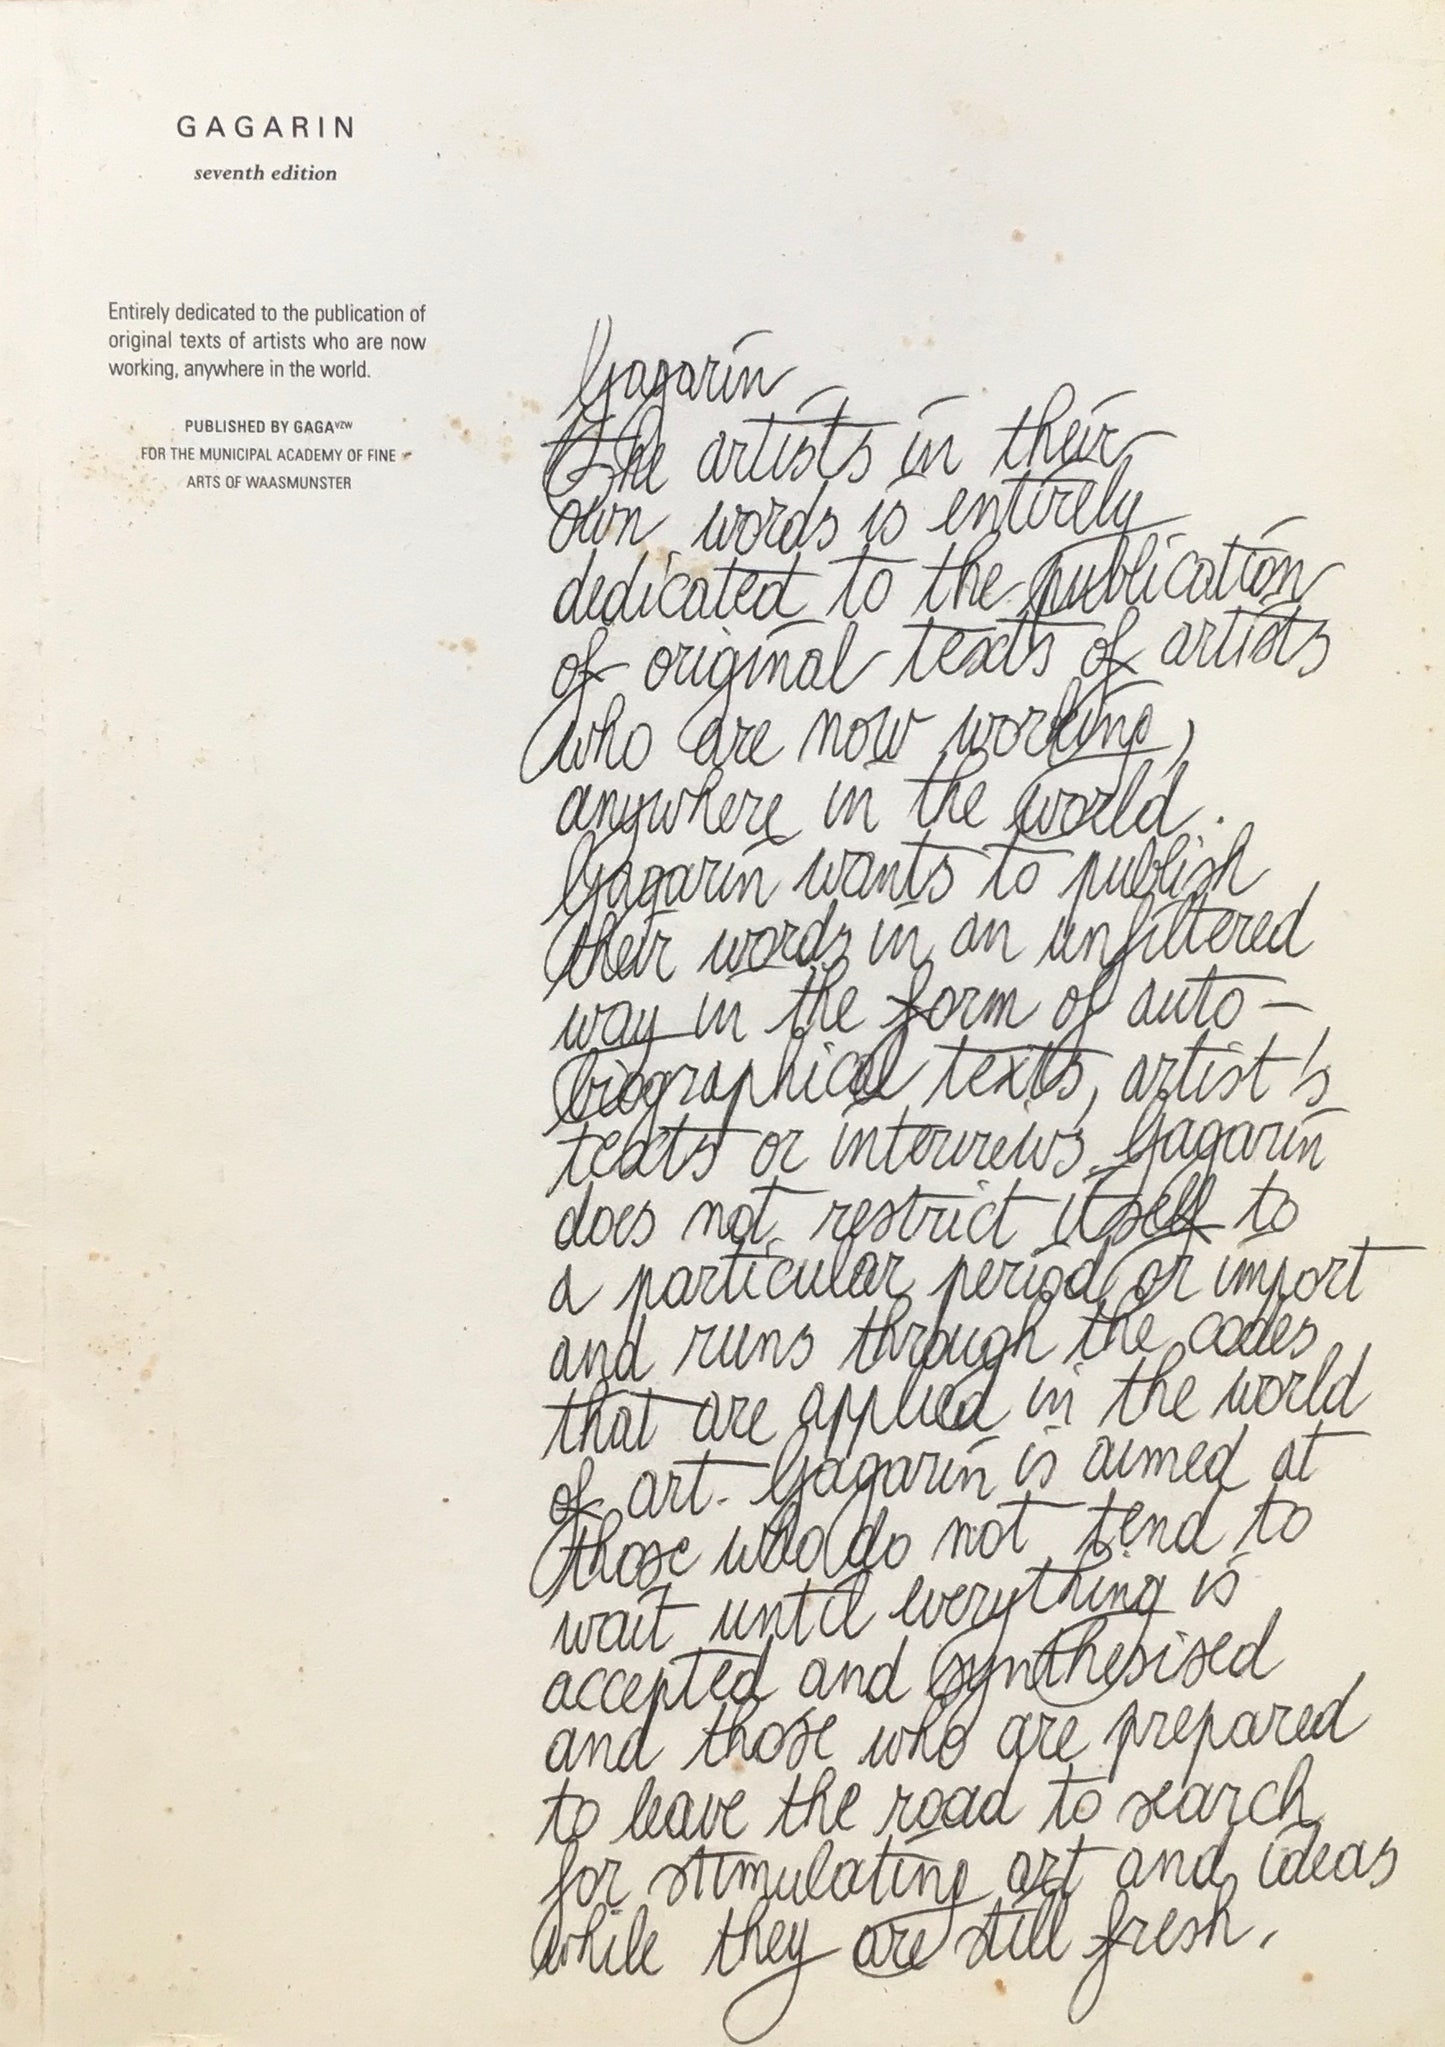 GAGARIN
seventh edition
Entirely dedicated to the publication of
original texts of artists who are now
working, anywhere in the world.
PUBLISHED BY GAGAVZW
FOR THE MUNICIPAL ACADEMY OF FINE
ARTS OF WAASMUNSTER
Gagarin
The artists in their
own words is entirely
dedicated to the publication
of original texts of artists
who are now working,
anywhere in the world.
Gagarin wants to publish
their words in an unfiltered
way in the form of auto-
biographical texts, artist's
texts or interviews. Gagarin
does not restrict itself to
a particular period or import
and runs through the codes
that are applied in the world
of art. Gagarin is aimed at
those who do not tend to
wait until everything is
accepted and synthesised
and those who are prepared
to leave the road to search
for stimulating art and ideas
while they are still fresh.